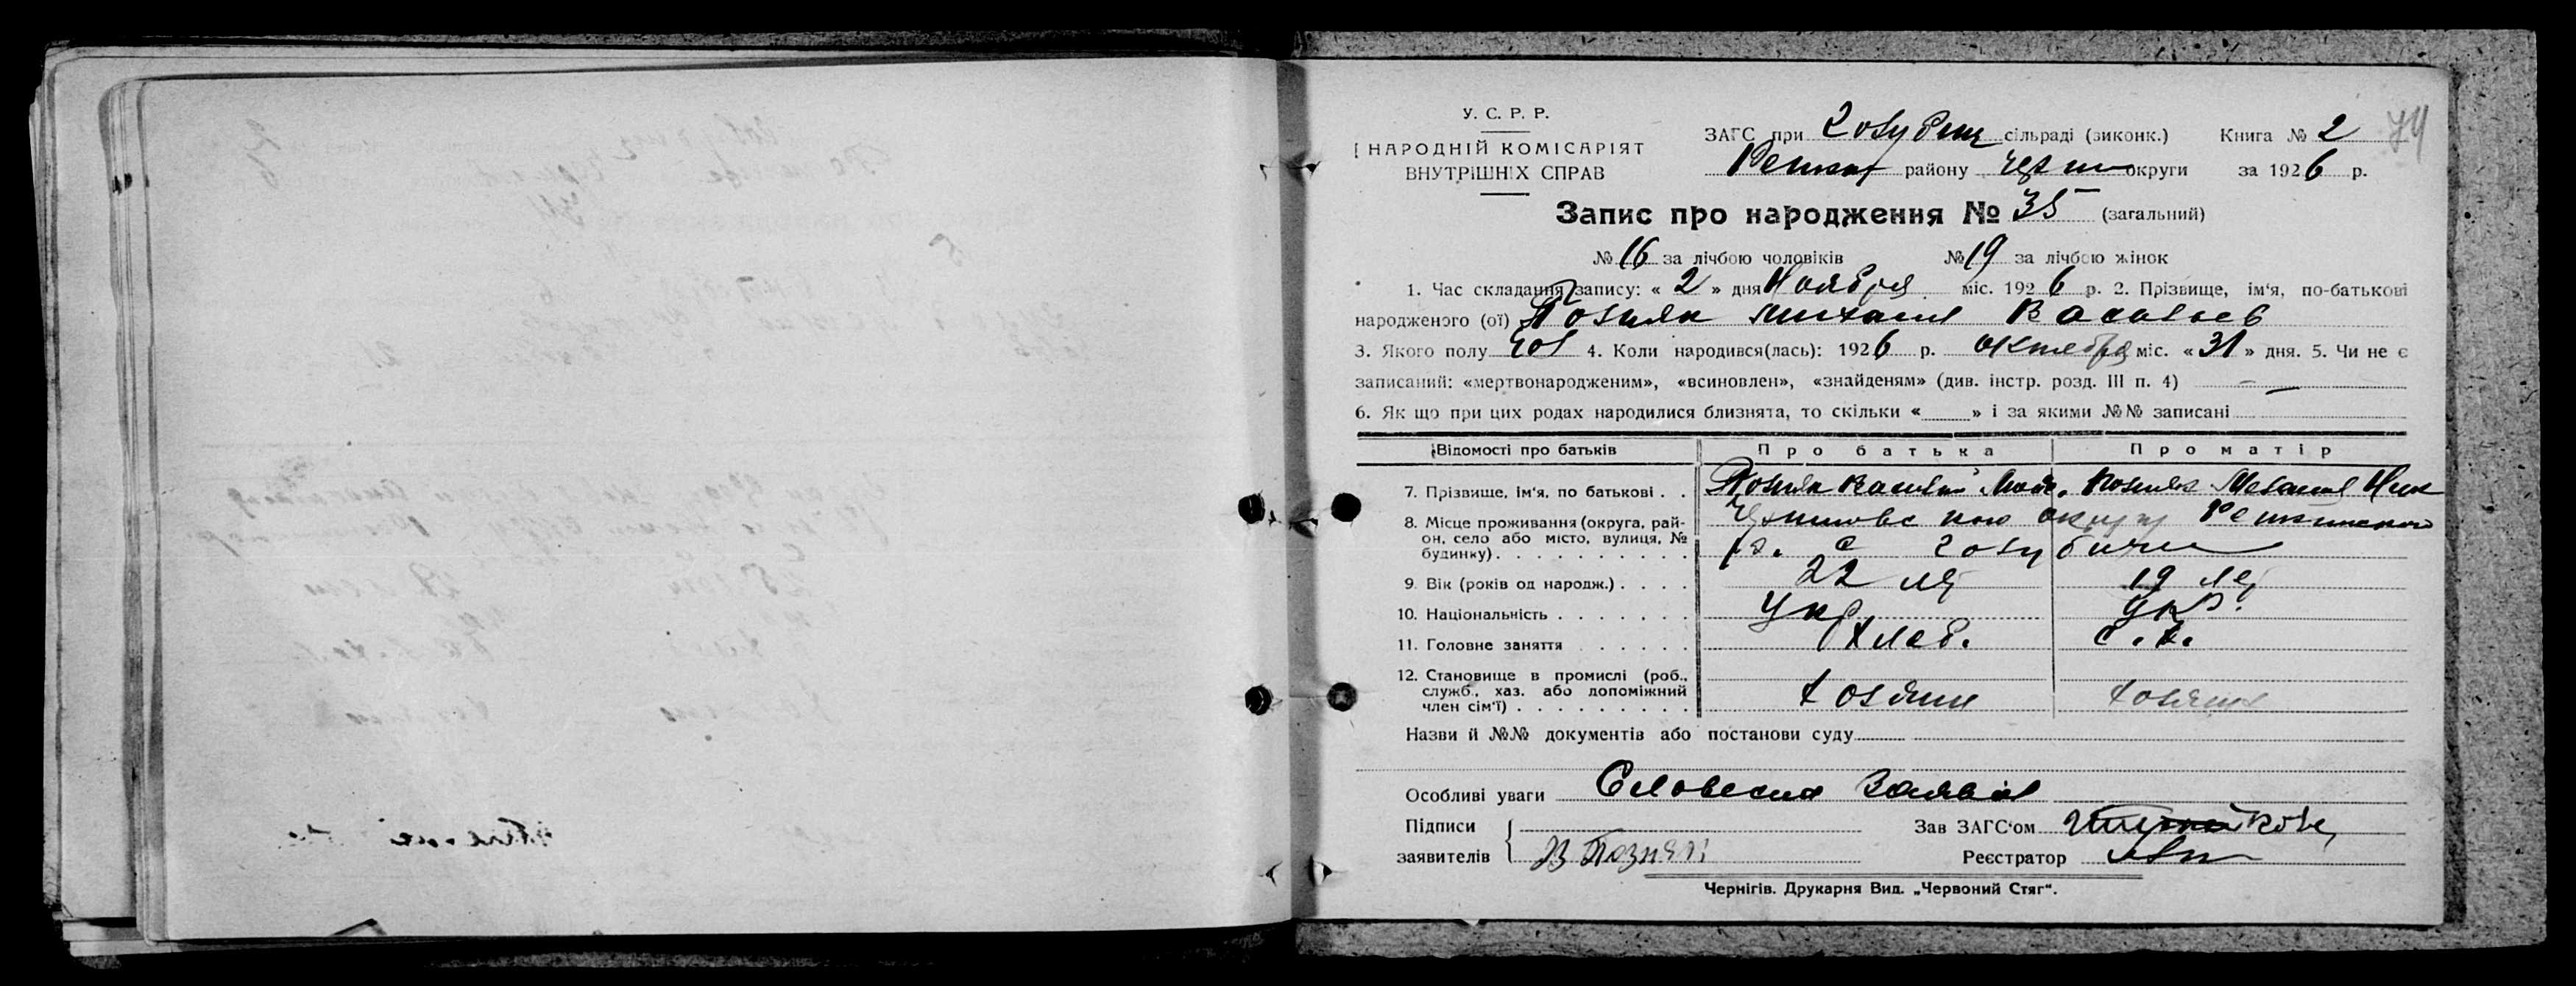 У. С. Р. Р.
НАРОДНІЙ КОМІСАРІЯТ
ВНУТРІШНІХ СПРАВ
ЗАГС при Голубичі сільраді (виконк.) Книга № 2 74
Репкин району Черни округи за 1926 р.
Запис про народження № 35 (загальний)
№ 16 за лічбою чоловіків № 19 за лічбою жінок
1. Час складання запису: « 2 » дня Ноября міс. 1926 р. 2. Прізвище, ім'я, по-батькові
народженого (ої) Позняк Михаил Васильев
3. Якого полу чол 4. Коли народився(лась): 1926 р. октября міс. « 31 » дня. 5. Чи не є
записаний: «мертвонародженим», «всиновлен», «знайденям» (див. інстр. розд. III п. 4) —
6. Як що при цих родах народилися близнята, то скільки « » і за якими №№ записані
Відомості про батьків Про батька Про матір
7. Прізвище, ім'я, по батькові . . Позняк Василий Позняк Мелания Ник
8. Місце проживання (округа, рай- Черниговскою округу Репкинского
он, село або місто, вулиця, № ра. с Голубичи
будинку)
9. Вік (років од народж.) 22 лет 19 лет
10. Національність Укр Укр.
11. Головне заняття Хлеб. с. х.
12. Становище в промислі (роб.,
служб., хаз. або допоміжний хозяин хозяин
член сім'ї)
Назви й №№ документів або постанови суду
Особливі уваги Словесная Заявил
Підписи Зав ЗАГС'ом
заявителів В Позняк Реєстратор
Чернігів. Друкарня Вид. „Червоний Стяг".